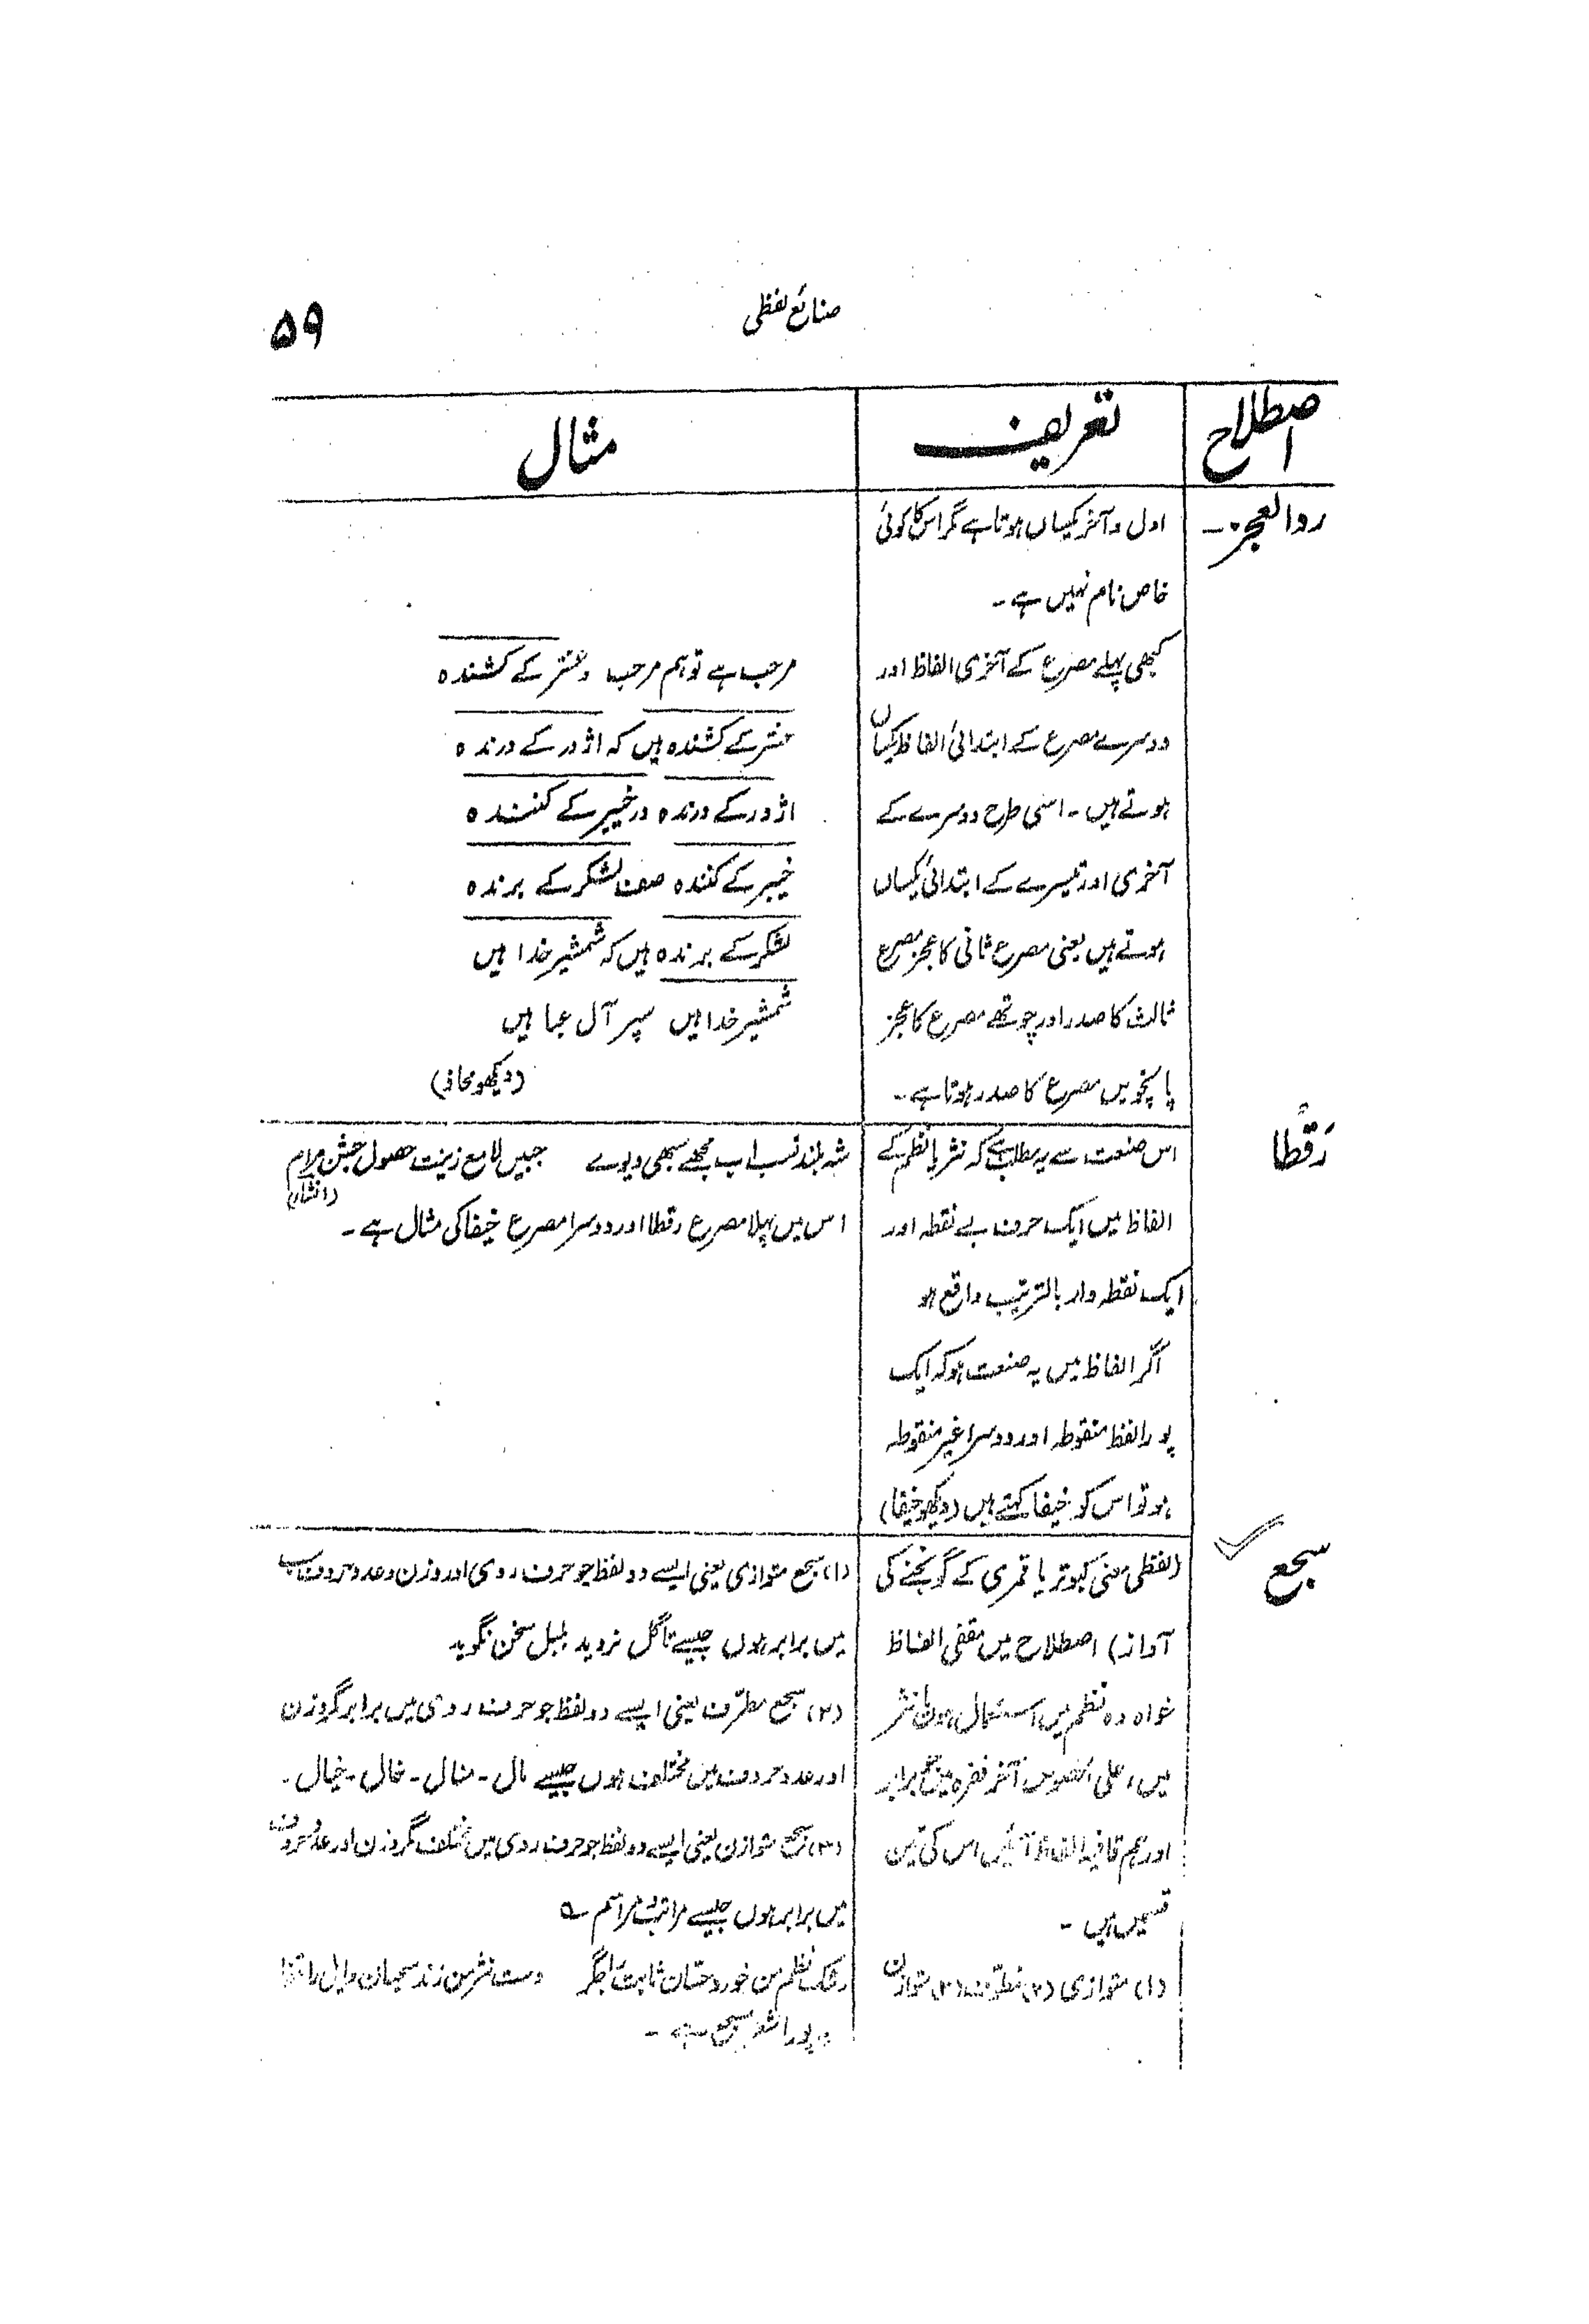 ۵۹
صنائع لفظی
اصطلاح
تعریف
مثال
ردالعجز۔
اول و آخر یکساں ہوتا ہے مگر اس کا کوئی
خاص نام نہیں ہے۔
کبھی پہلے مصرع کے آخری الفاظ اور
دوسرے مصرع کے ابتدائی الفاظ یکساں
ہوتے ہیں۔ اسی طرح دوسرے کے
آخری اور تیسرے کے ابتدائی یکساں
ہوتے ہیں یعنی مصرع ثانی کا عجز مصرع
ثالث کا صدر اور چوتھے مصرع کا عجز
پانچویں مصرع کا صدر ہوتا ہے۔
مرحب ہے تو ہم مرحب و عنتر کے کشندہ
عنتر کے کشندہ ہیں کہ اژدر کے درندہ
اژدر کے درندہ در خیبر کے کنندہ
خیبر کے کنندہ صف لشکر کے برندہ
لشکر کے برندہ ہیں کہ شمشیر خدا ہیں
شمشیر خدا ہیں سپر آل عبا ہیں
(دیکھو محاذ)
رَقطا
اس صنعت سے یہ مطلب ہے کہ نثر یا نظم کے
الفاظ میں ایک حرف بے نقطہ اور
ایک نقطہ دار بالترتیب واقع ہو
اگر الفاظ میں یہ صنعت ہو کہ ایک
پورا لفظ منقوطہ اور دوسرا غیر منقوطہ
ہو تو اس کو خیفا کہتے ہیں (دیکھو خیفا)
شہ بلند نسب اب مجھے سبھی دیوے جبیں لامع زینت حصول جشن مرام
(انشا)
اس میں پہلا مصرع رقطا اور دوسرا مصرع خیفا کی مثال ہے۔
سجع
(لفظی معنی کبوتر یا قمری کے گونجنے کی
آواز) اصطلاح میں مقفی الفاظ
خواہ وہ نظم میں استعمال ہوں یا نثر
میں، علی الخصوص آخر فقرہ میں برابر
اور ہم قافیہ الفاظ آئیں اس کی تین
قسمیں ہیں۔
(۱) متوازی (۲) مطرف (۳) متوازن
(۱) سجع متوازی یعنی ایسے دو لفظ جو حرف روی اور وزن و عدد حروف سب
میں برابر ہوں جیسے تا گل نروید بلبل سخن نگوید
(۲) سجع مطرّف یعنی ایسے دو لفظ جو حرف روی میں برابر مگر وزن
اور عدد حروف میں مختلف ہوں جیسے مال۔ منال۔ خال۔ خیال۔
(۳) سجع متوازن یعنی ایسے دو لفظ جو حرف روی میں مختلف مگر وزن اور عدد حروف
میں برابر ہوں جیسے مراتب مراسم ؎
رشک نظم من خورد حسان ثابت را جگر دست نثر من زند سحبان وائل را قفا
پورا شعر مسجع ہے۔